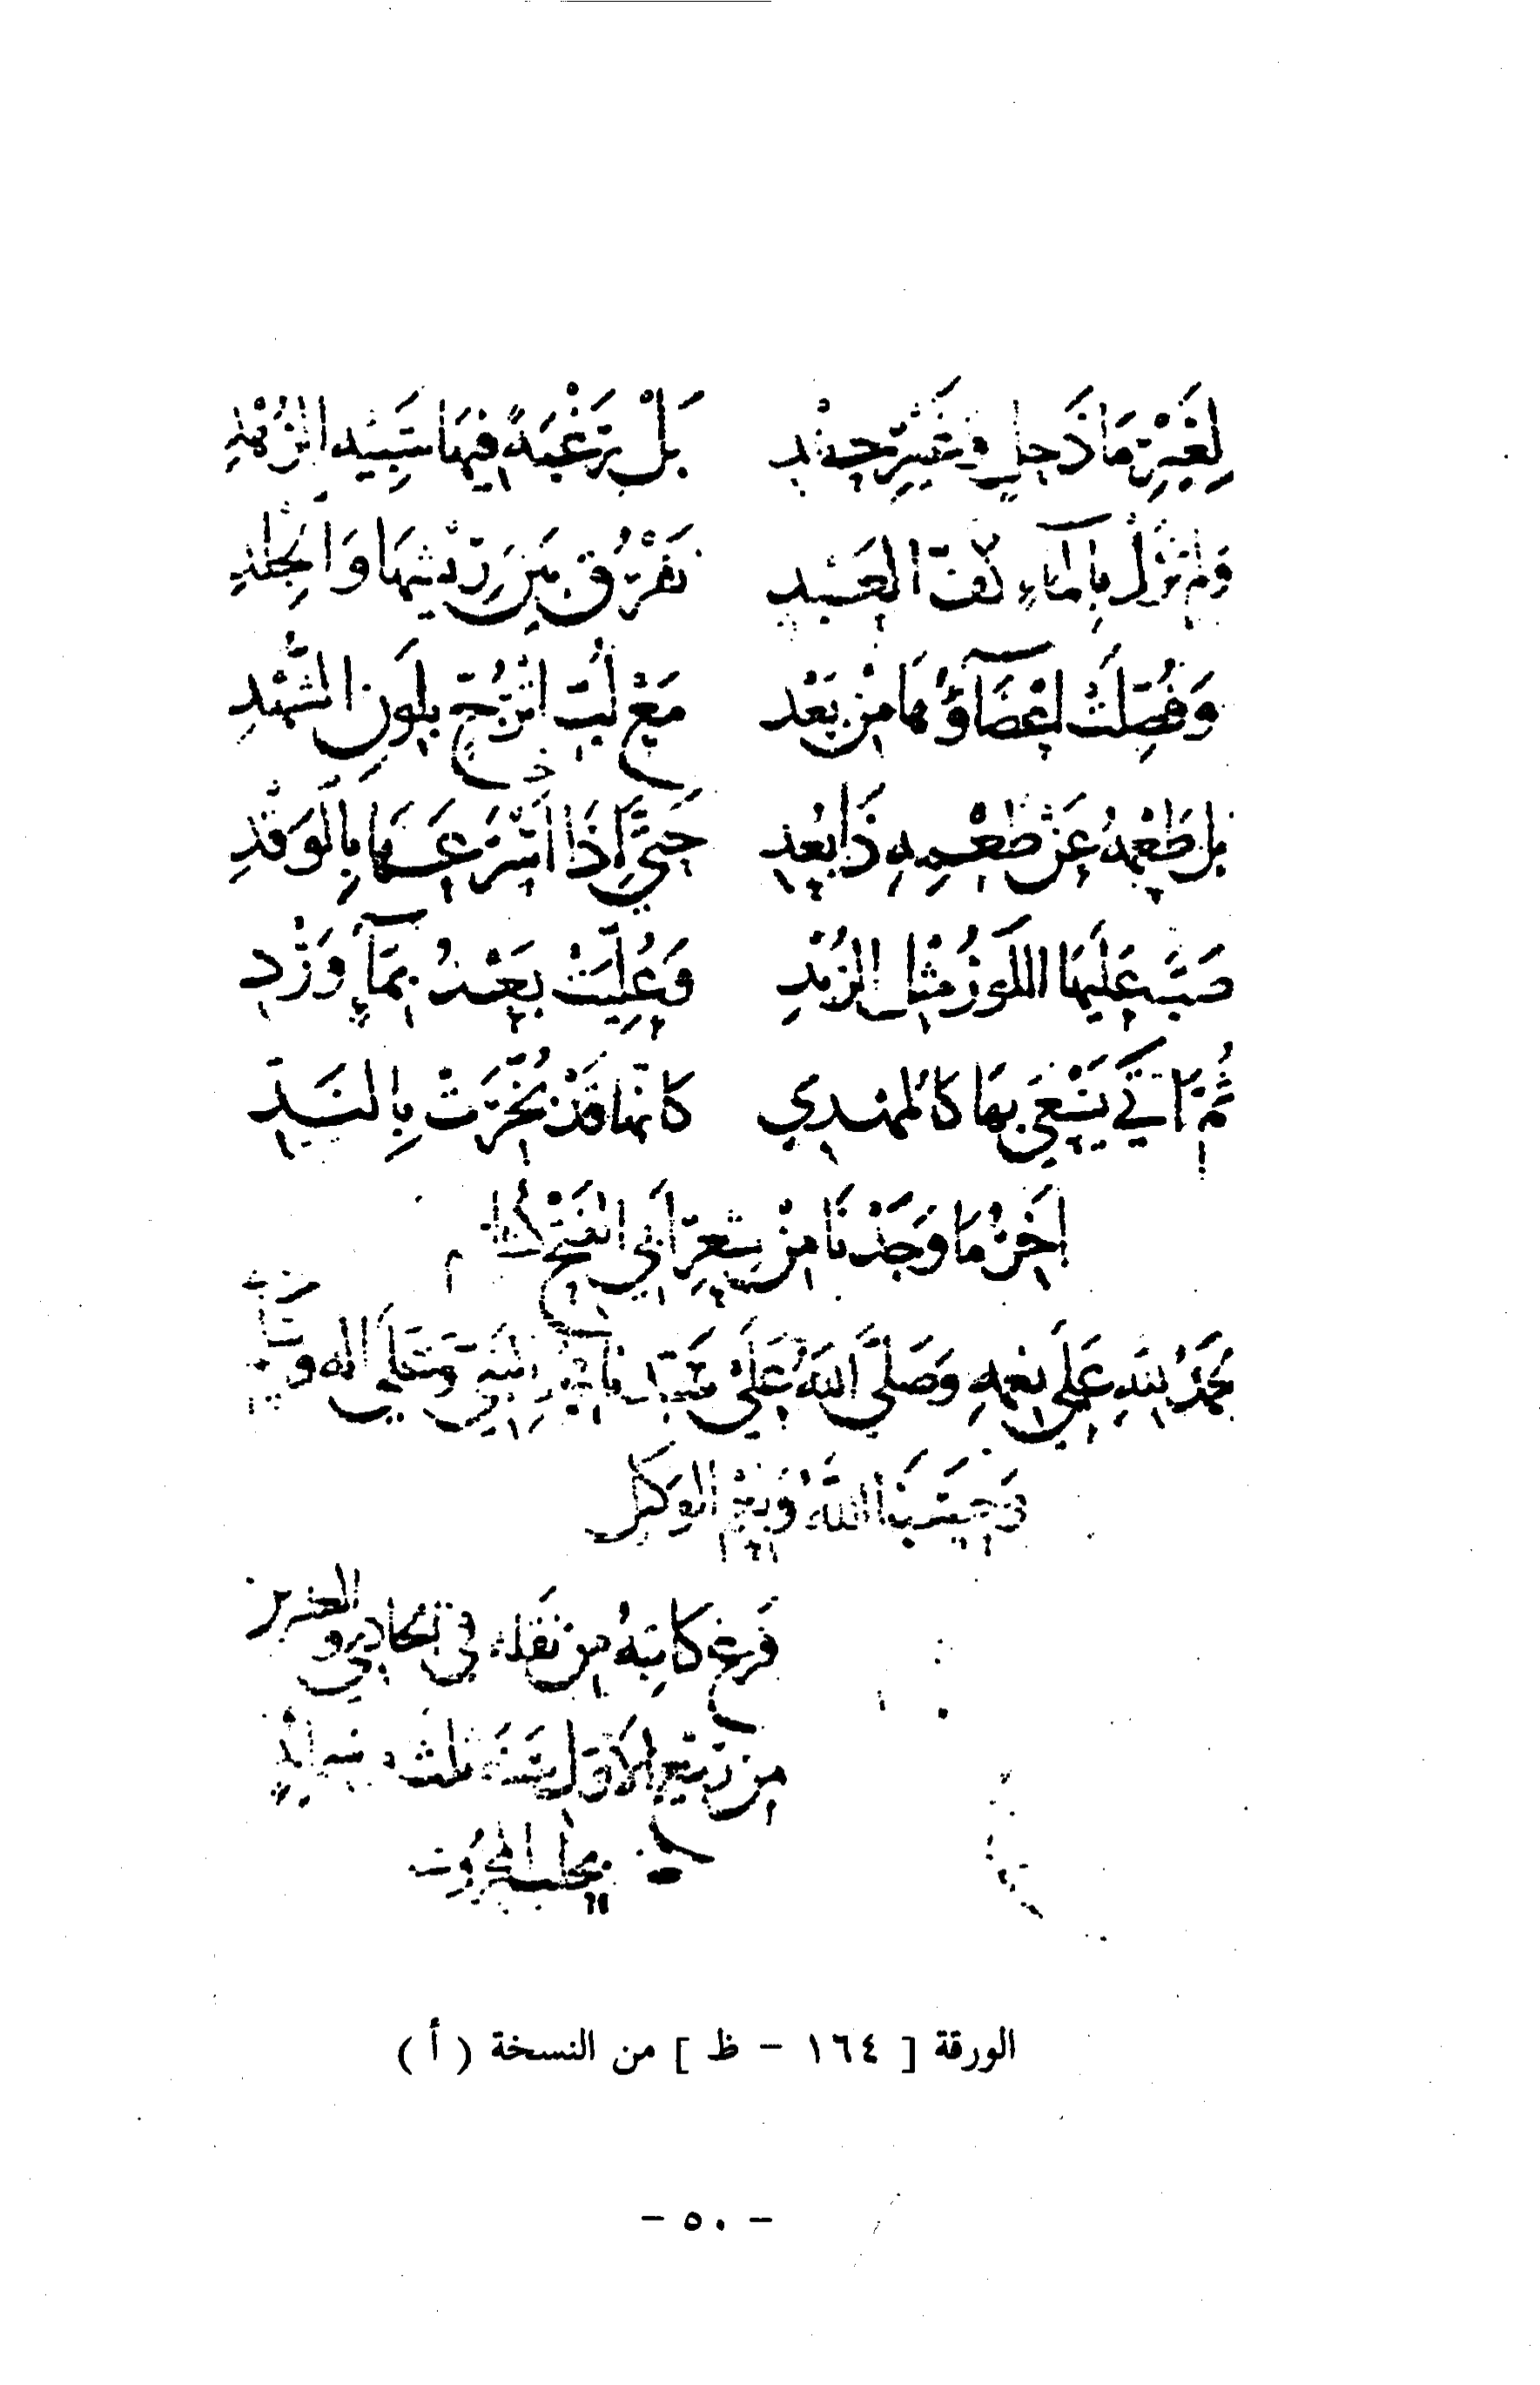 لِغَيْرِ مَا ذَحْلٍ وَغَيْرِ حِقْدِ بَلْ رَغْبَةً فِيهَا شَبِيْهَ الزُّهْدِ
وَلَمْ تَزَلْ بِالْمَآءِ كَفُّ الْعَبْدِ تَفْرُقُ بَيْنَ رِيْشِهَا وَالْجِلْدِ
وَفُصِّلَتْ أَعْضَآؤُهَا مِنْ بَعْدِ مَعْ لُبِّ اتْرُجٍّ بِلَوْنِ الشَّهْدِ
بل طَعْمُهُ عَنْ طَعْمِهِ ذَا بُعْدِ حَتَّى إِذَا أَتْرَعَهَا بِالْوَقْدِ
صَبَّ عَلَيْهَا اللَّوزَ مِثْلَ الزُّبْدِ وَعُلِّيَتْ بَعْدُ بِمَآءِ وَرْدِ
ثُمَّ أَتَى يَسْعَى بِهَا كَالْمُهْدِي كَأَنَّهَا قَدْ بُخِّرَتْ بِالنَّدِّ
آخِرُ مَا وَجَدْنَا مِنْ شِعْرِ أَبِي الْفَتْحِ
نَحْمَدُ اللهَ عَلَى نِعَمِهِ وَصَلَّى اللهُ عَلَى سَيِّدِنَا مُحَمَّدٍ النَّبِيِّ وَعَلَى آلِهِ وَسَلَّمَ
وَحَسْبُنَا اللَّهُ وَنِعْمَ الْوَكِيلُ
فَرَغَ كَاتِبُهُ مِنْ نَقْلِهِ فِي الحَادِي والعشرين
مِنْ رَبِيْعِ الأَوَّلِ سَنَةَ ثلث
بِحَلَبَ الْمَحْرُوسَة
الورقة [ ١٦٤ – ظ ] من النسخة ( أ )
– ٥٠ –